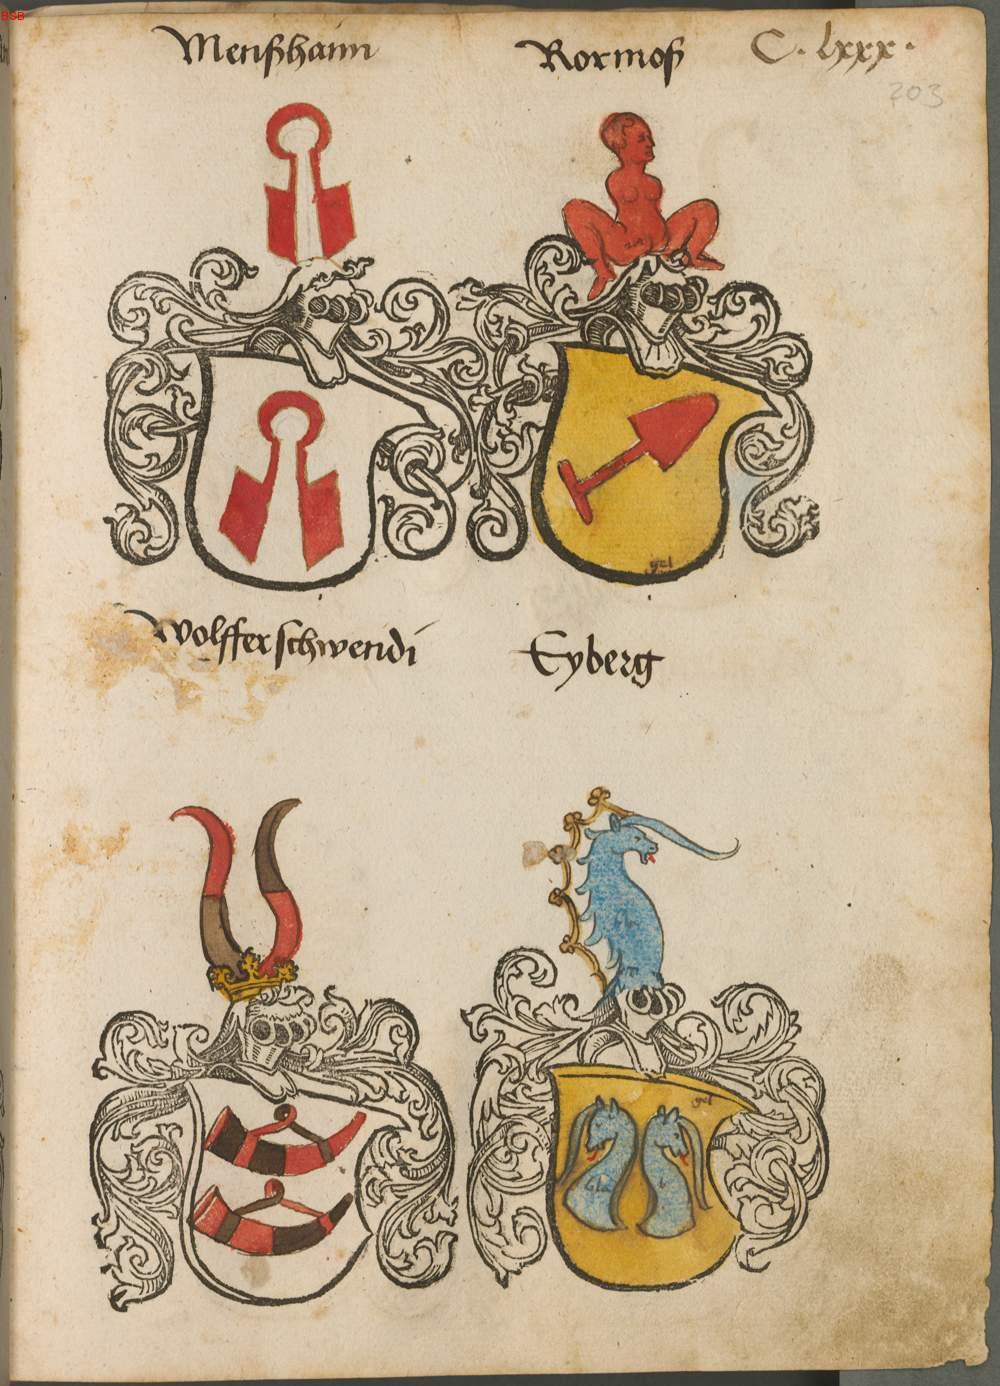 BSB
Menßhaim
Rormoß
C. lxxx.
203
gel
Wolfferschwendi
Eyberg
gel
bla
b